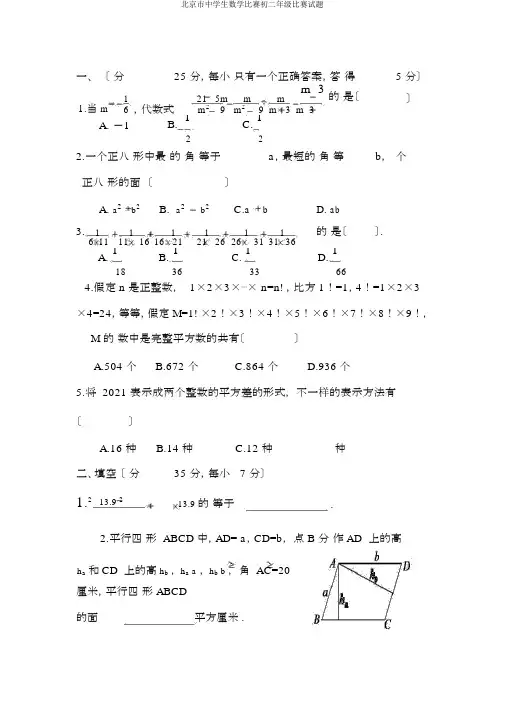 北京市中学生数学比赛初二年级比赛试题
一、 〔 分 25 分, 每小 只有一个正确答案, 答 得 5 分〕
1.当 m=−1/6 , 代数式 (21−5m)/(m²−9) − m/(m²−9) ÷ m/(m+3) − (m−3)/(m+3) 的 是〔 〕
A. −1 B. 1/2 C. 1/2
2.一个正八 形中最 的 角 等于 a, 最短的 角 等 b, 个
正八 形的面 〔 〕
A. a² +b² B. a² − b² C.a +b D. ab
3. 1/(6×11) + 1/(11×16) + 1/(16×21) + 1/(21×26) + 1/(26×31) + 1/(31×36) 的 是〔 〕.
A. 1/18 B. 1/36 C. 1/33 D. 1/66
4.假定 n 是正整数, 1×2×3×⋯× n=n! , 比方 1！=1, 4！=1×2×3
×4=24, 等等, 假定 M=1! ×2！×3！×4！×5！×6！×7！×8！×9！,
M 的 数中是完整平方数的共有〔 〕
A.504 个 B.672 个 C.864 个 D.936 个
5.将 2021 表示成两个整数的平方差的形式, 不一样的表示方法有
〔 〕
A.16 种 B.14 种 C.12 种 种
二、填空〔 分 35 分, 每小 7 分〕
1.² 13.9² + ×13.9 的 等于 .
2.平行四 形 ABCD 中, AD= a, CD=b, 点 B 分 作 AD 上的高
hₐ 和 CD 上的高 h_b , hₐ a , h_b b , 角 AC=20
厘米, 平行四 形 ABCD
的面 平方厘米 .
A b D
a hₐ h_b
B C